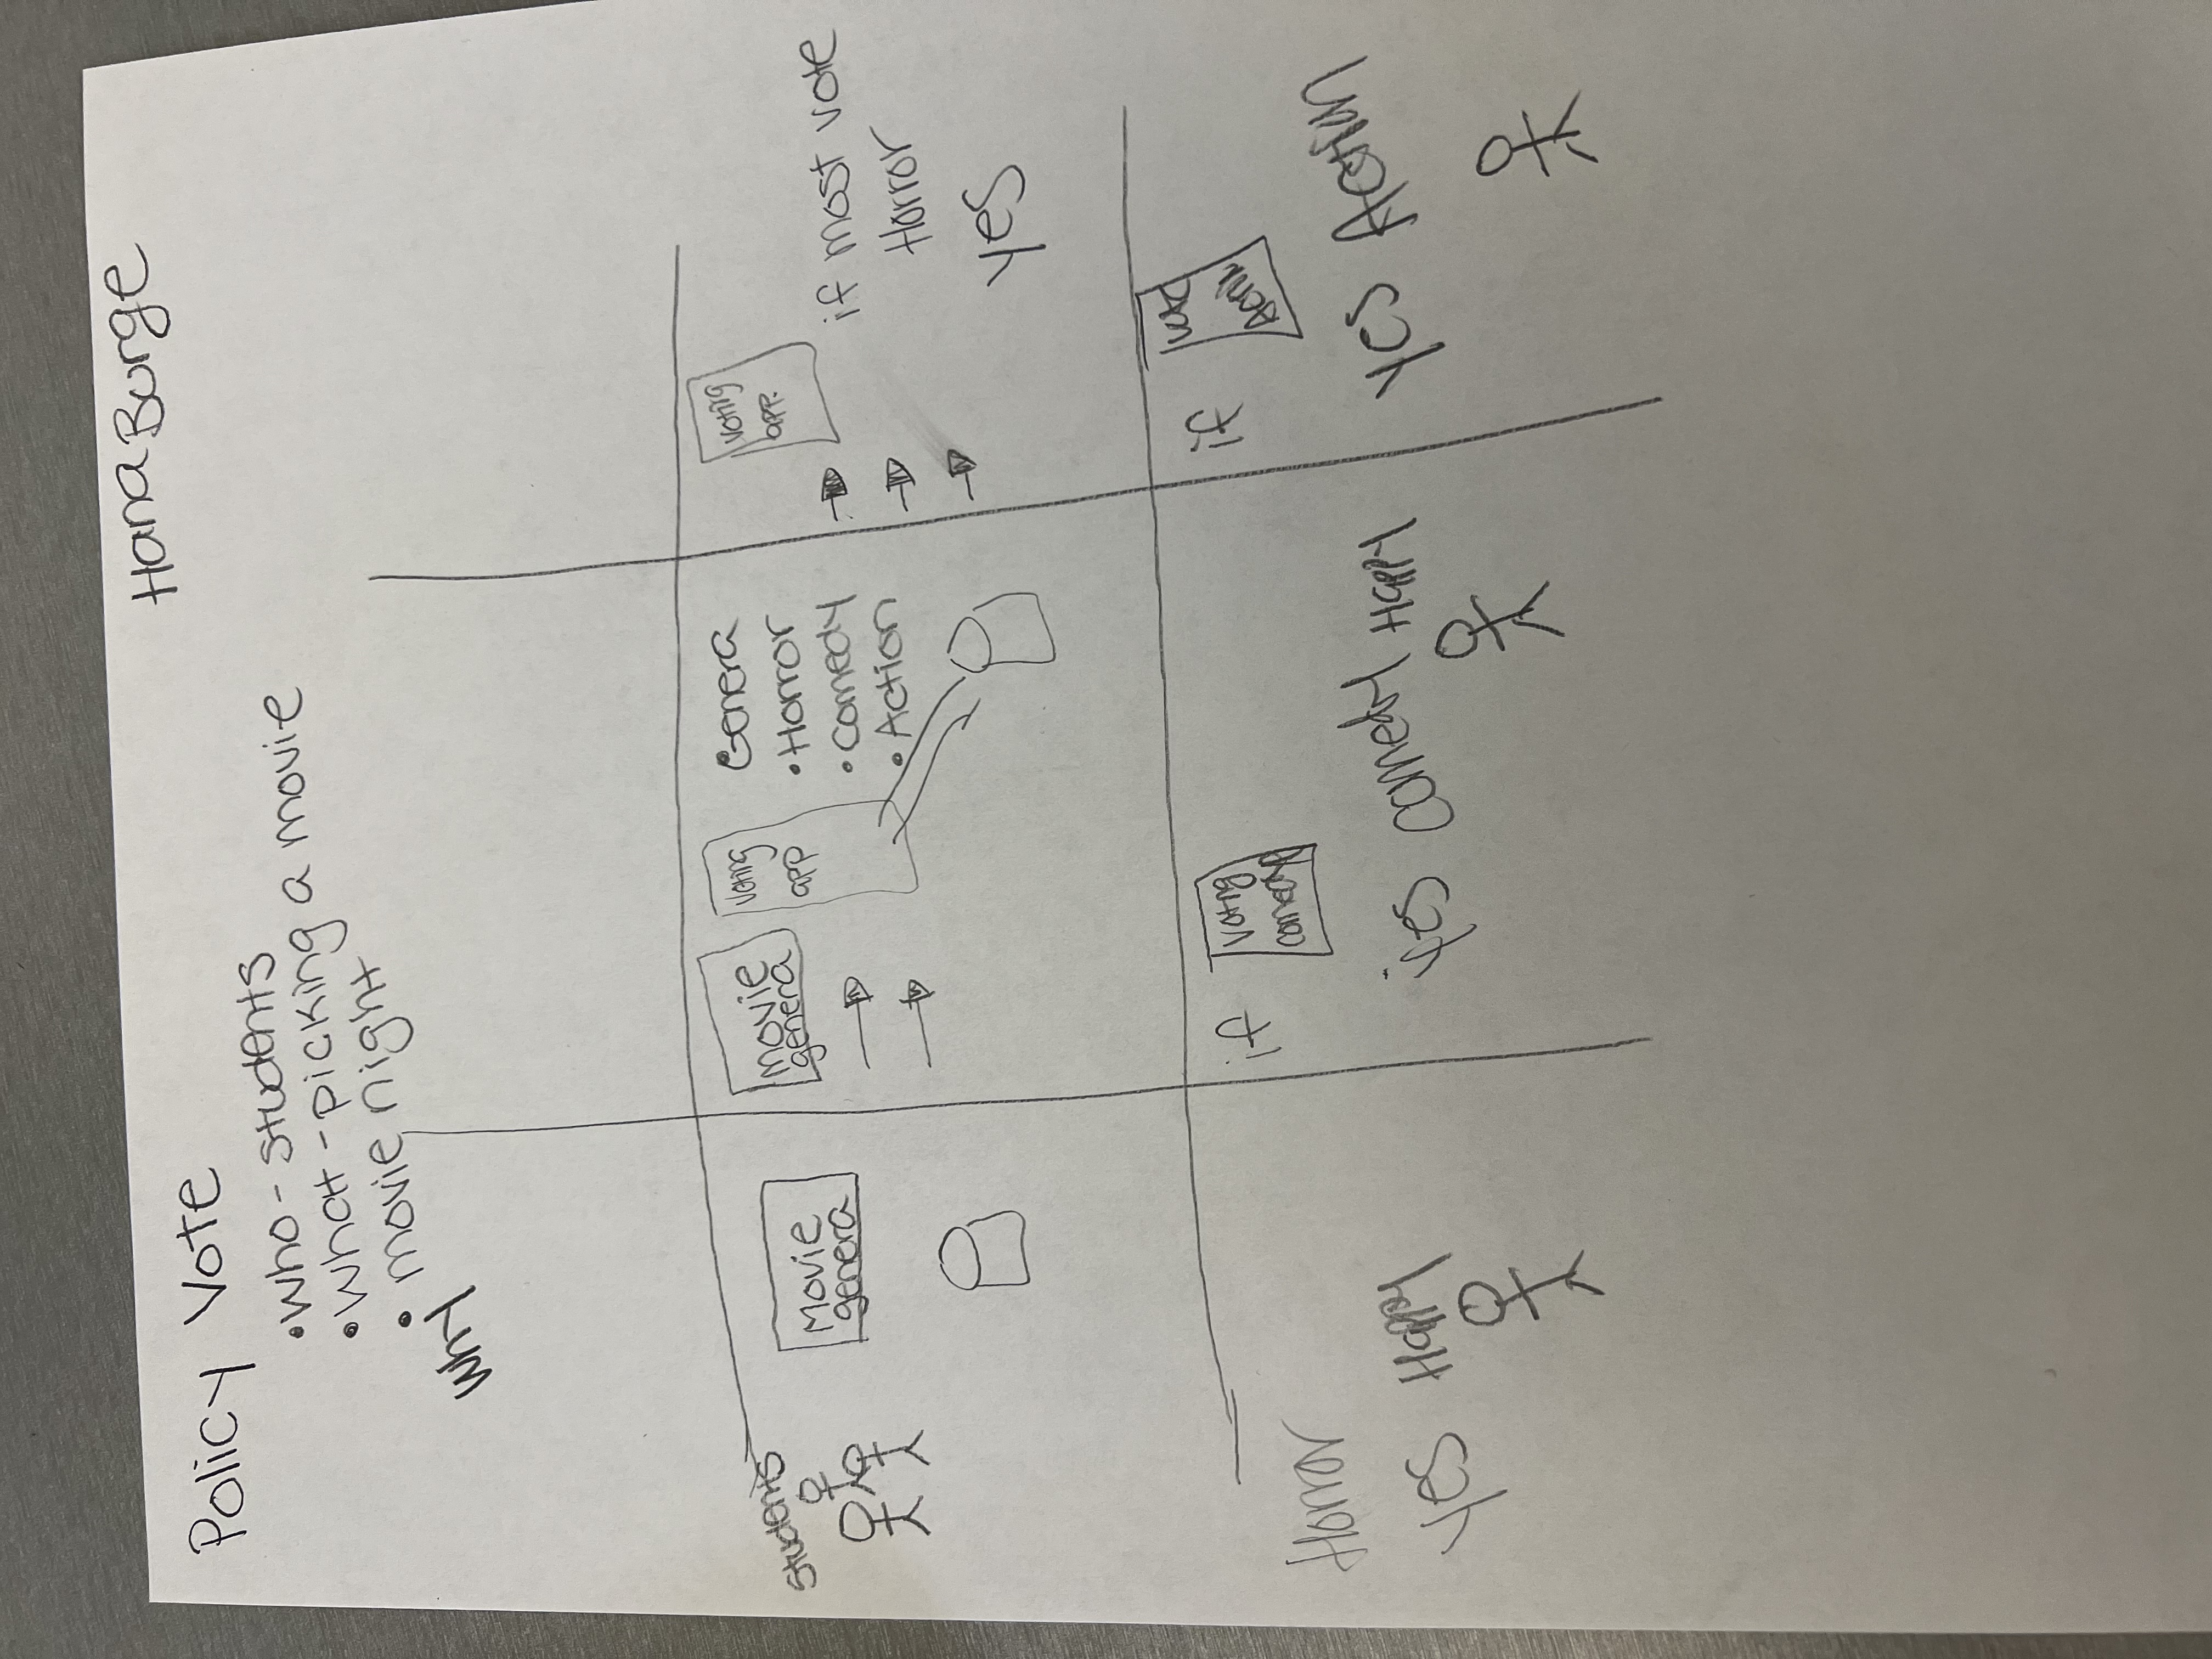 Hana Burge
Policy Vote
• who - students
• what - picking a movie
• movie night
why
students
Movie
genera
movie
genera
voting
app
Genera
• Horror
• comedy
• Action
voting
app.
if most vote
Horror
yes
Horror
yes Happy
if
Voting
comedy
yes comedy Happy
if
Action
yes Action